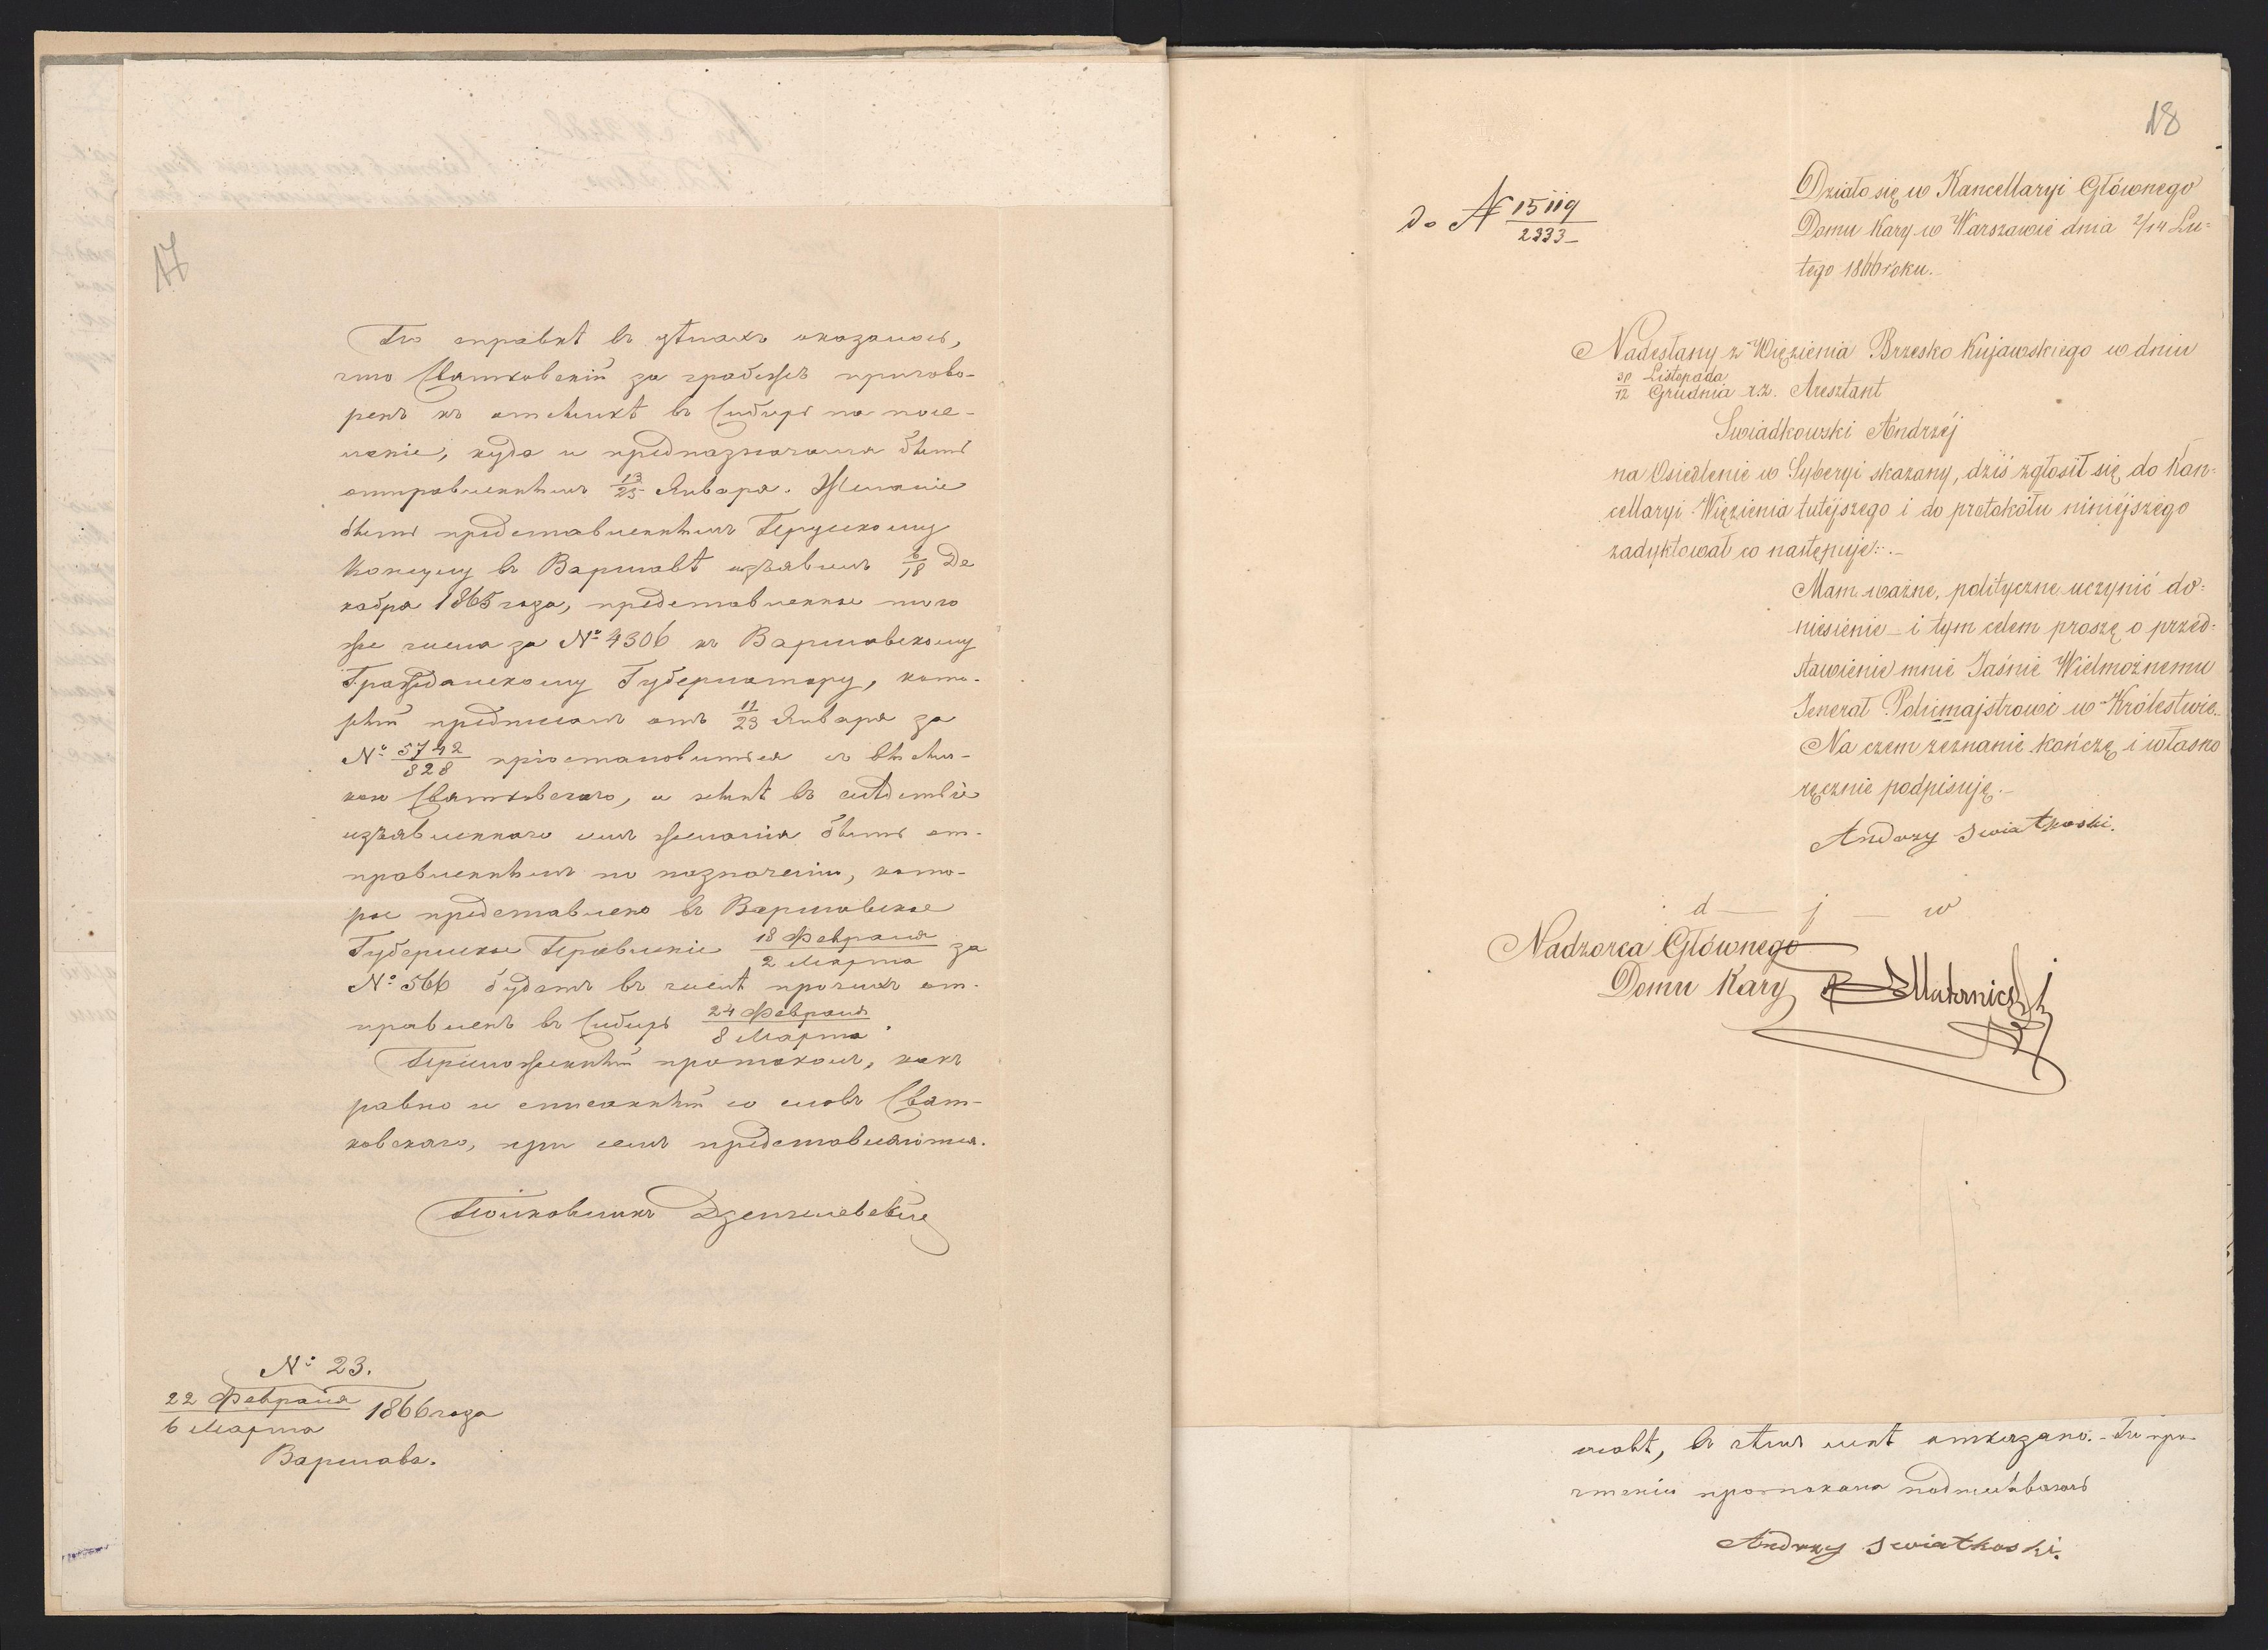 17
По справкѣ въ дѣлахъ оказалось,
что Святковскій за грабежъ пригово-
ренъ къ отсылкѣ въ Сибирь на посе-
леніе, куда и предназначался быть
отправленнымъ 13/25 Января. Желаніе
быть представленнымъ Прускому
Консулу въ Варшавѣ изъявилъ 6/18 Де
кабря 1865 года, представленное того
же числа за № 4306 къ Варшавскому
Гражданскому Губернатору, кото-
рый предписалъ отъ 11/23 Января за
№ 5742/828 пріостановиться съ высыл-
кою Святковскаго, а нынѣ въ слѣдствіе
изъявленнаго имъ желанія быть от-
правленнымъ по назначенію, кото-
рое представлено въ Варшавское
Губернское Правленіе 18 Февраля/2 Марта за
№ 566 будетъ въ числѣ прочихъ от-
правленъ въ Сибирь 24 Февраля/8 Марта.
Приложенный протоколъ, какъ
равно и списанный со словъ Свят-
ковскаго, при семъ представляются.
Полковникъ
№ 23.
22 Февраля/6 Марта 1866 года
Варшава.
18
do N 15119/2333
Działo się w Kancellaryi Głównego
Domu Kary w Warszawie dnia 2/14 Lu=
tego 1866 roku.
Nadesłany z Więzienia Brzesko Kujawskiego w dniu
30 Listopada/12 Grudnia r.z. Aresztant
Swiadkowski Andrzéj
na Osiedlenie w Syberyi skazany, dziś zgłosił się do Kan=
cellaryi Więzienia tutéjszego i do protokółu niniéjszego
zadyktował co następuje:.-
Mam ważne, polityczne uczynić do=
niesienie - i tym celem proszę o przed=
stawienie mnie Jaśnie Wielmożnemu
Jenerał Policmajstrowi w Królestwie.
Na czem zeznanie kończę i własno
ręcznie podpisuję.-
Andrzy Swiatkoski.
d - j - w
Nadzorca Głównego
Domu Kary
въ чёмъ мнѣ отказано. - По про-
чтеніи протокола подписываюсь
Andrzy Swiatkoski.